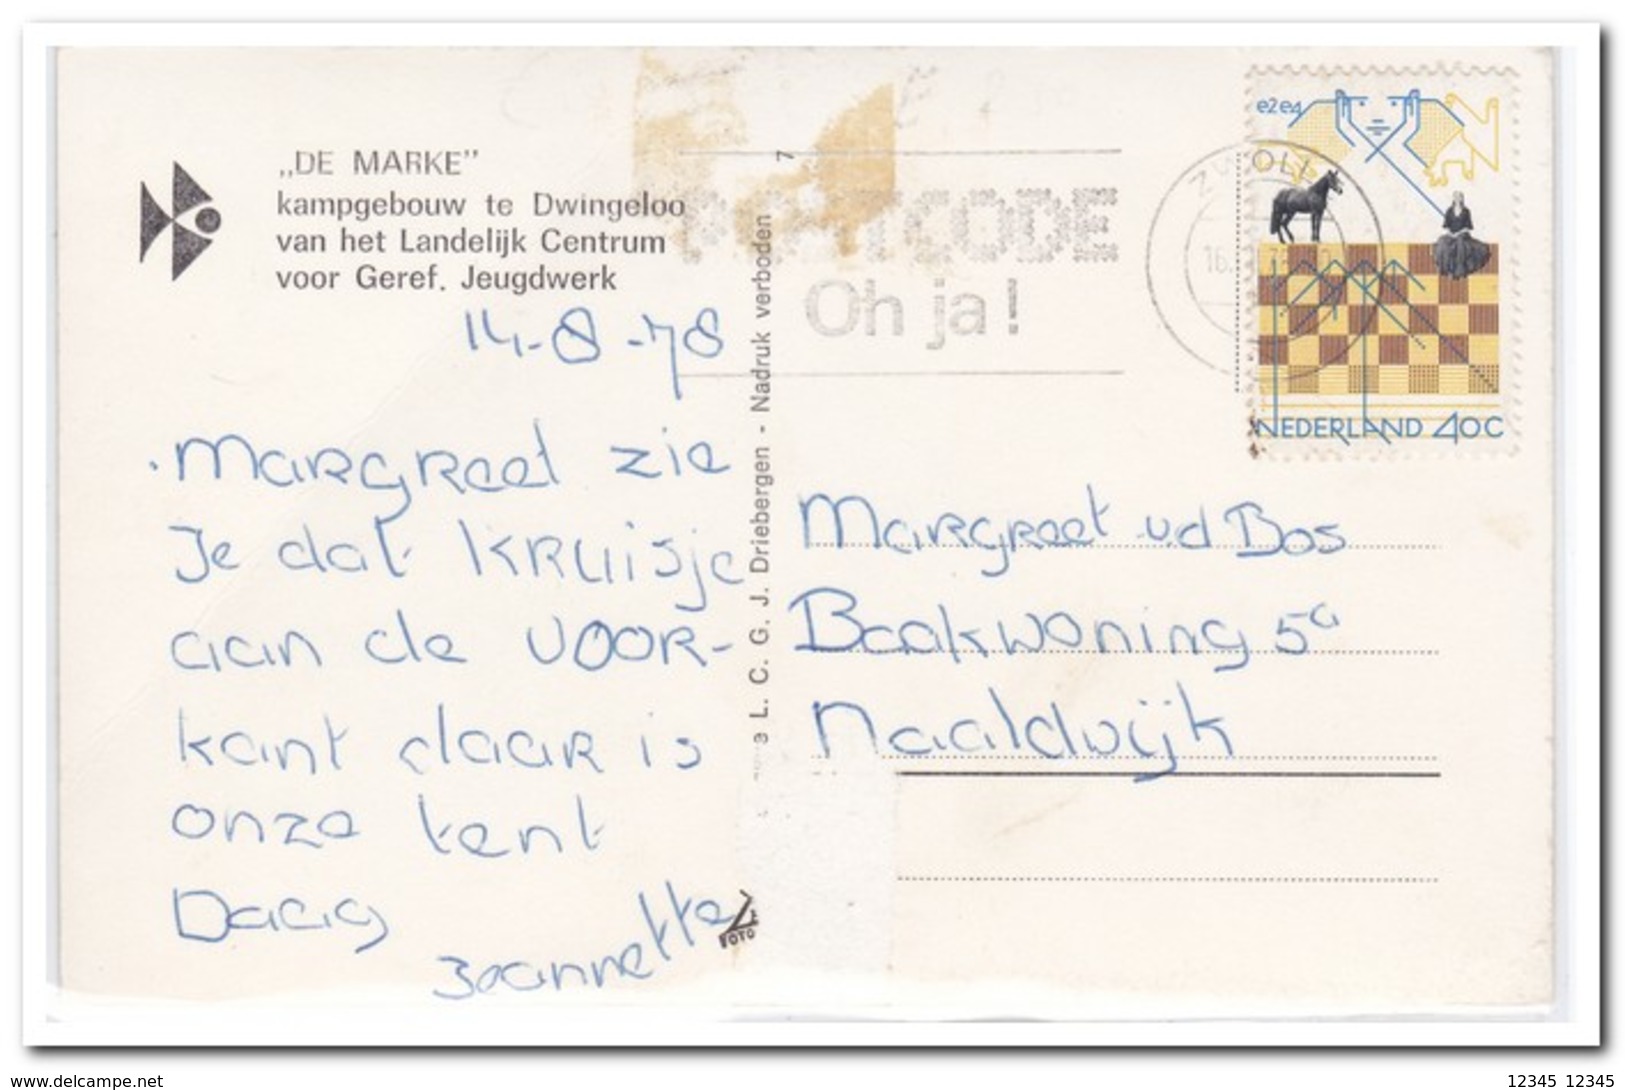 „DE MARKE”
kampgebouw te Dwingeloo
van het Landelijk Centrum
voor Geref. Jeugdwerk
14-8-78
Margreet zie
Je dat kruisje
aan de voor-
kant daar is
onze tent
Daag
Jeannette
L. C. G. J. Driebergen - Nadruk verboden 7
FOTO
POSTKODE
Oh ja!
ZWOLLE
e2e4
NEDERLAND 40C
Margreet v.d Bos
Baakwoning 5a
Naaldwijk
www.delcampe.net
12345 12345